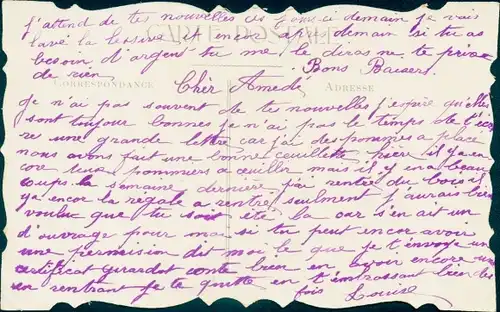 j'attend de tes nouvelles ces jours-ci demain je vais
lavé la lessive et encor après demain si tu as
besoin d'argent tu me le diras ne te prive
de rien Bons Baisers
CARTE POSTALE
CORRESPONDANCE ADRESSE
Chèr Amedé
Je n'ai pas souvent de tes nouvelles j'espère qu'elles
sont toujour bonnes je n'ai pas le temps de t'écri
re une grande lettre car j'ai des pommes a placé
nous avons fait une bonne ceuillette hier il y a en
core leus pommiers a ceuillir mais il y en a beau
coups la semaine dernière j'ai rentré du bois il
y a encor la regale a rentré seulment j'aurais bien
voulue que tu soit été la car s'en ait un
d'ouvrage pour moi si tu peut encor avoir
une permision dit moi le que je t'envoye un
certificat Girardot conte bien en avoir encore une
en rentrant je te quitte en t'embrassant bien des
fois Louise